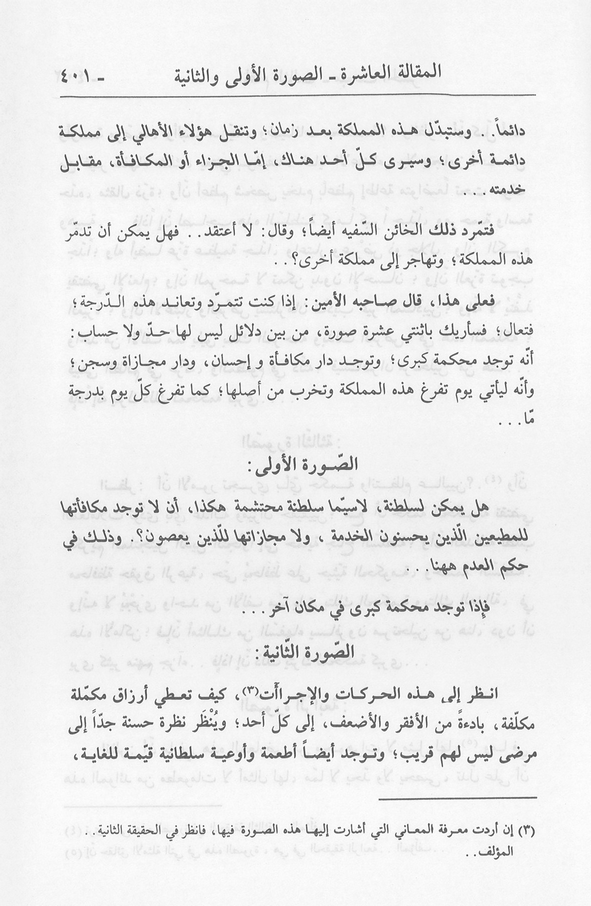 المقالة العاشرة - الصورة الأولى والثانية - ٤٠١
دائماً. . وستبدّل هذه المملكة بعد زمان؛ وتنقل هؤلاء الأهالي إلى مملكة
دائمة أخرى؛ وسيرى كلّ أحد هناك، إمّا الجزاء أو المكافأة، مقابل
خدمته. . .
فتمّرد ذلك الخائن السّفيه أيضاً؛ وقال: لا أعتقد. . فهل يمكن أن تدمّر
هذه المملكة؛ وتهاجر إلى مملكة أخرى؟. .
فعلى هذا، قال صاحبه الأمين: إذا كنت تتمرّد وتعاند هذه الدّرجة؛
فتعال؛ فسأريك باثنتي عشرة صورة، من بين دلائل ليس لها حدّ ولا حساب:
أنّه توجد محكمة كبرى؛ وتوجد دار مكافأة و إحسان، ودار مجازاة وسجن؛
وأنّه ليأتي يوم تفرغ هذه المملكة وتخرب من أصلها؛ كما تفرغ كلّ يوم بدرجة
مّا. . .
الصّورة الأولى:
هل يمكن لسلطنة، لاسيّما سلطنة محتشمة هكذا، أن لا توجد مكافأتها
للمطيعين الّذين يحسنون الخدمة ، ولا مجازاتها للّذين يعصون؟. وذلك في
حكم العدم ههنا. . .
فإذا توجد محكمة كبرى في مكان آخر. . .
الصّورة الثّانية:
انظر إلى هذه الحركات والإجراآت(٣)، كيف تعطي أرزاق مكمّلة
مكلّفة، بادءةً من الأفقر والأضعف، إلى كلّ أحد؛ ويُنْظَر نظرة حسنة جدّاً إلى
مرضى ليس لهم قريب؛ وتوجد أيضاً أطعمة وأوعية سلطانية قيّمة للغاية،
(٣) إن أردت معرفة المعاني التي أشارت إليها هذه الصورة فيها، فانظر في الحقيقة الثانية. .
المؤلف. .